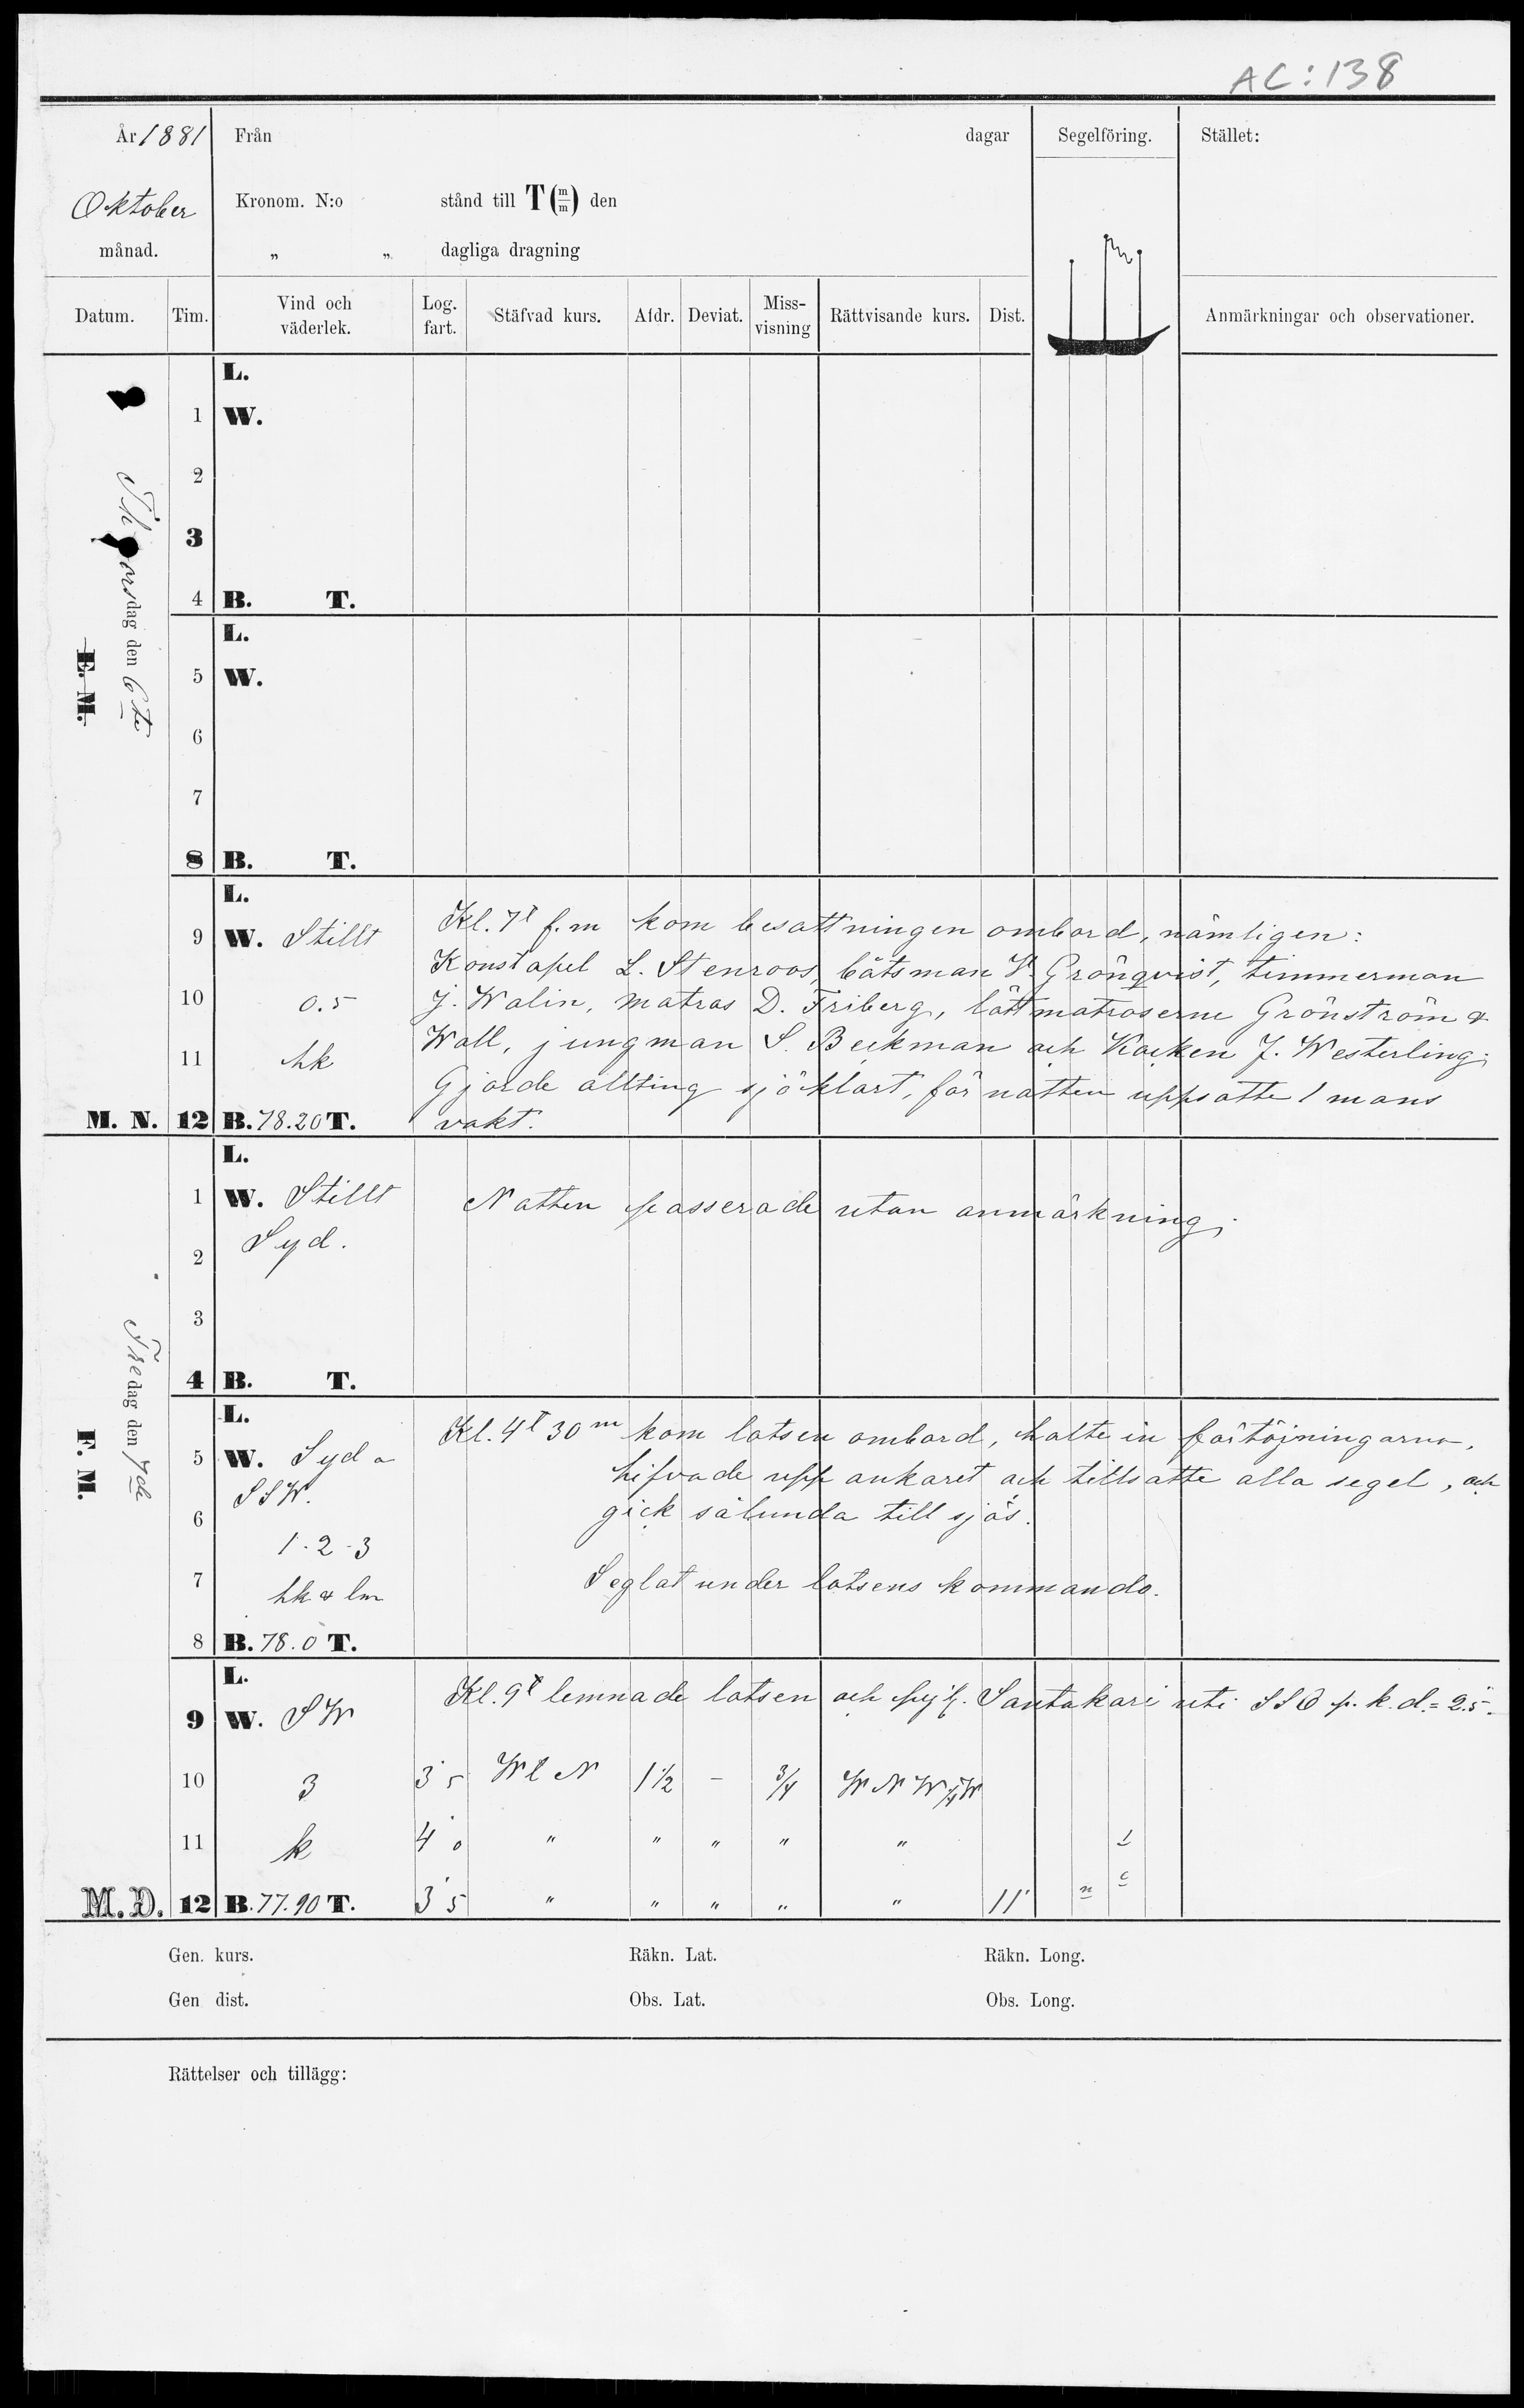 AC: 138
År 1881 Från dagar Segelföring. Stället:
Oktober Kronom. N:o stånd till T(m/m) den
månad. „ „ dagliga dragning
Datum. Tim. Vind och väderlek. Log. fart. Stäfvad kurs. Afdr. Deviat. Miss- visning Rättvisande kurs. Dist. Anmärkningar och observationer.
Thorsdag den 6te
E. M.
L.
1 W.
2
3
4 B. T.
L.
5 W.
6
7
8 B. T.
L.
9 W. Stillt Kl. 7t f.m kom besättningen ombord, nämligen:
Konstapel L. Stenroos, båtsman V. Grönqvist, timmerman
10 0.5 J. Walin, matros D. Friberg, lättmatroserne Grönström &
11 hk Wall, jungman S. Beckman och Kocken J. Westerling;
Gjorde allting sjöklart, för natten uppsatte 1 mans
M. N. 12 B. 78.20 T. vakt.
Fredag den 7de
F. M.
L.
1 W. Stillt Natten passerade utan anmärkning;
2 Syd.
3
4 B. T.
L.
Kl. 4t 30m kom lotsen ombord, halte in förtöjningarna,
5 W. Syd a hifvade upp ankaret och tillsatte alla segel, och
SSW.
6 gick sålunda till sjös.
1-2-3
7 hk & lm Seglat under lotsens kommando.
8 B. 78.0 T.
L.
Kl. 9t lemnade lotsen och Santakari uti SSO p. k. d. = 2.5.
9 W. SW
10 3 3 5 WtN 1½ - ¾ WNW ¼ W
11 k 4 0 " " " " " 1
M. D. 12 B. 77.90 T. 3 5 " " " " " 11'
Gen. kurs. Räkn. Lat. Räkn. Long.
Gen dist. Obs. Lat. Obs. Long.
Rättelser och tillägg: